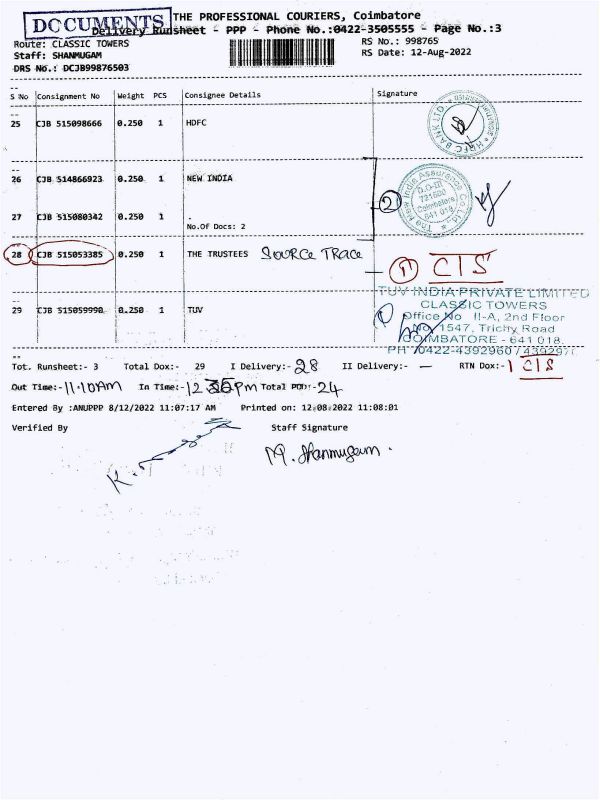 DOCUMENTS
THE PROFESSIONAL COURIERS, Coimbatore
Delivery Runsheet - PPP - Phone No.:0422-3505555 - Page No.:3
Route: CLASSIC TOWERS RS No.: 998765
Staff: SHANMUGAM RS Date: 12-Aug-2022
DRS No.: DCJB99876503
S No Consignment No Weight PCS Consignee Details Signature
25 CJB 515098666 0.250 1 HDFC
HDFC BANK LTD.
26 CJB 514866923 0.250 1 NEW INDIA
The New India Assurance Co. Ltd.
D.O-III
721500
Coimbatore
641 018
2
27 CJB 515080342 0.250 1 .
No.Of Docs: 2
28 CJB 515053385 0.250 1 THE TRUSTEES SOURCE TRACE
1 C/S
29 CJB 515059990 0.250 1 TUV
TUV INDIA PRIVATE LIMITED
CLASSIC TOWERS
Office No II-A, 2nd Floor
No. 1547, Trichy Road
COIMBATORE - 641 018.
PH : 0422-4392960 /
Tot. Runsheet:- 3 Total Dox:- 29 I Delivery:- 28 II Delivery:- - RTN Dox:- 1 C/S
Out Time:- 11.10AM In Time:- Pm Total POD:- 24
Entered By :ANUPPP 8/12/2022 11:07:17 AM Printed on: 12-08-2022 11:08:01
Verified By Staff Signature
M. Shanmugam.